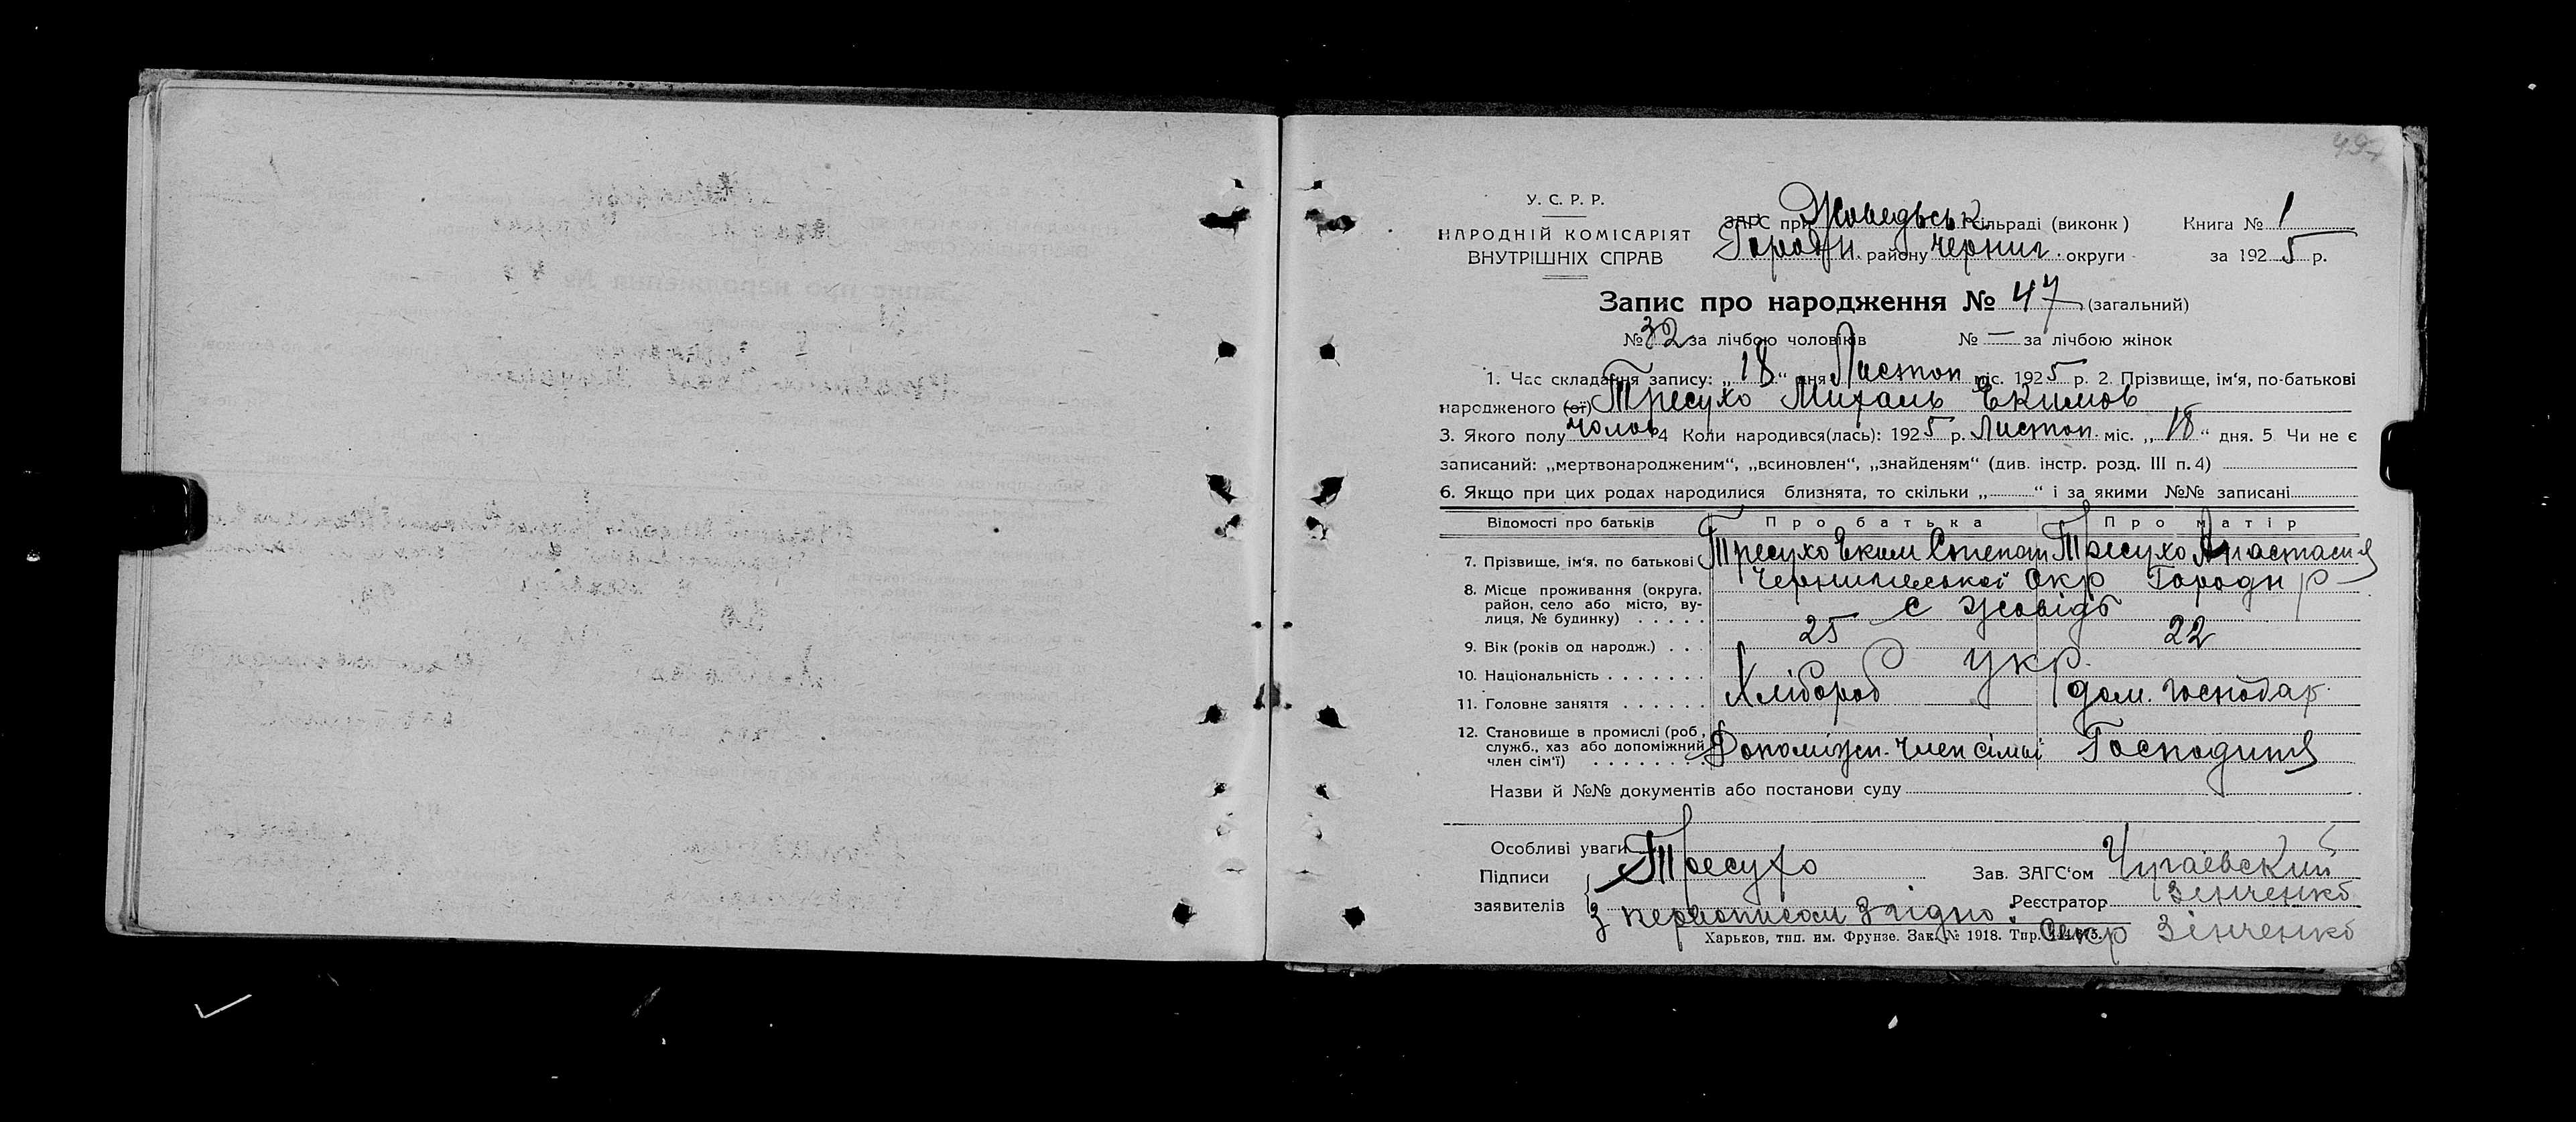 У. С. Р. Р.
НАРОДНІЙ КОМІСАРІЯТ
ВНУТРІШНІХ СПРАВ
ЗАГС при Жоведськ сільраді (виконк)
Городн. району Черниг. округи
Книга № 1
за 1925 р.
Запис про народження № 47 (загальний)
№ 32 за лічбою чоловіків № — за лічбою жінок
1. Час складання запису: „18“ дня Листоп міс. 1925 р. 2. Прізвище, ім‘я, по-батькові
народженого (ої) Тресухо Михаль Екимов
3. Якого полу чолов 4 Коли народився(лась): 1925 р. Листоп. міс. „18“ дня. 5 Чи не є
записаний: „мертвонародженим“, „всиновлен“, „знайденям“ (див. інстр. розд. III п. 4)
6. Якщо при цих родах народилися близнята, то скільки „ “ і за якими №№ записані
Відомості про батьків Про батька Про матір
7. Прізвище, ім‘я, по батькові Тресухо Еким Степан Тресухо Анастасия
8. Місце проживання (округа, район, село або місто, вулиця, № будинку) Чернигівської Окр Городн р
с Жовідь
9. Вік (років од народж.) 25 22
10. Національність Укр.
11. Головне заняття Хлібороб дом. господар.
12. Становище в промислі (роб., служб., хаз або допоміжний член сім‘ї) Допоміжн. член сімьі Господиня
Назви й №№ документів або постанови суду
Особливі уваги
Підписи заявителів Тресухо
Зав. ЗАГС‘ом Чугаевский
Реєстратор Зінченко
З первописом згідно: Секр Зінченко
Харьков, тип. им. Фрунзе. Зак. № 1918. Тир.